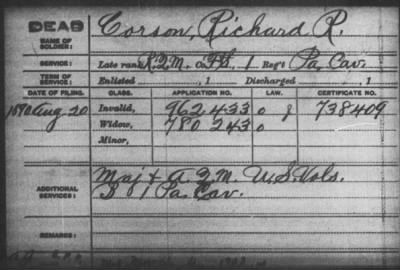 DEAD
NAME OF SOLDIER: Corson, Richard R.
SERVICE: Late rank R.Q.M. F&S, 1 Reg't Pa. Cav.
TERM OF SERVICE: Enlisted , 1 Discharged , 1
DATE OF FILING. CLASS. APPLICATION NO. LAW. CERTIFICATE NO.
Aug 20 Invalid, 962433 738409
Widow, 780243
Minor,
ADDITIONAL SERVICES: Maj + A.Q.M. U.S. Vols.
1 Pa Cav.
REMARKS: